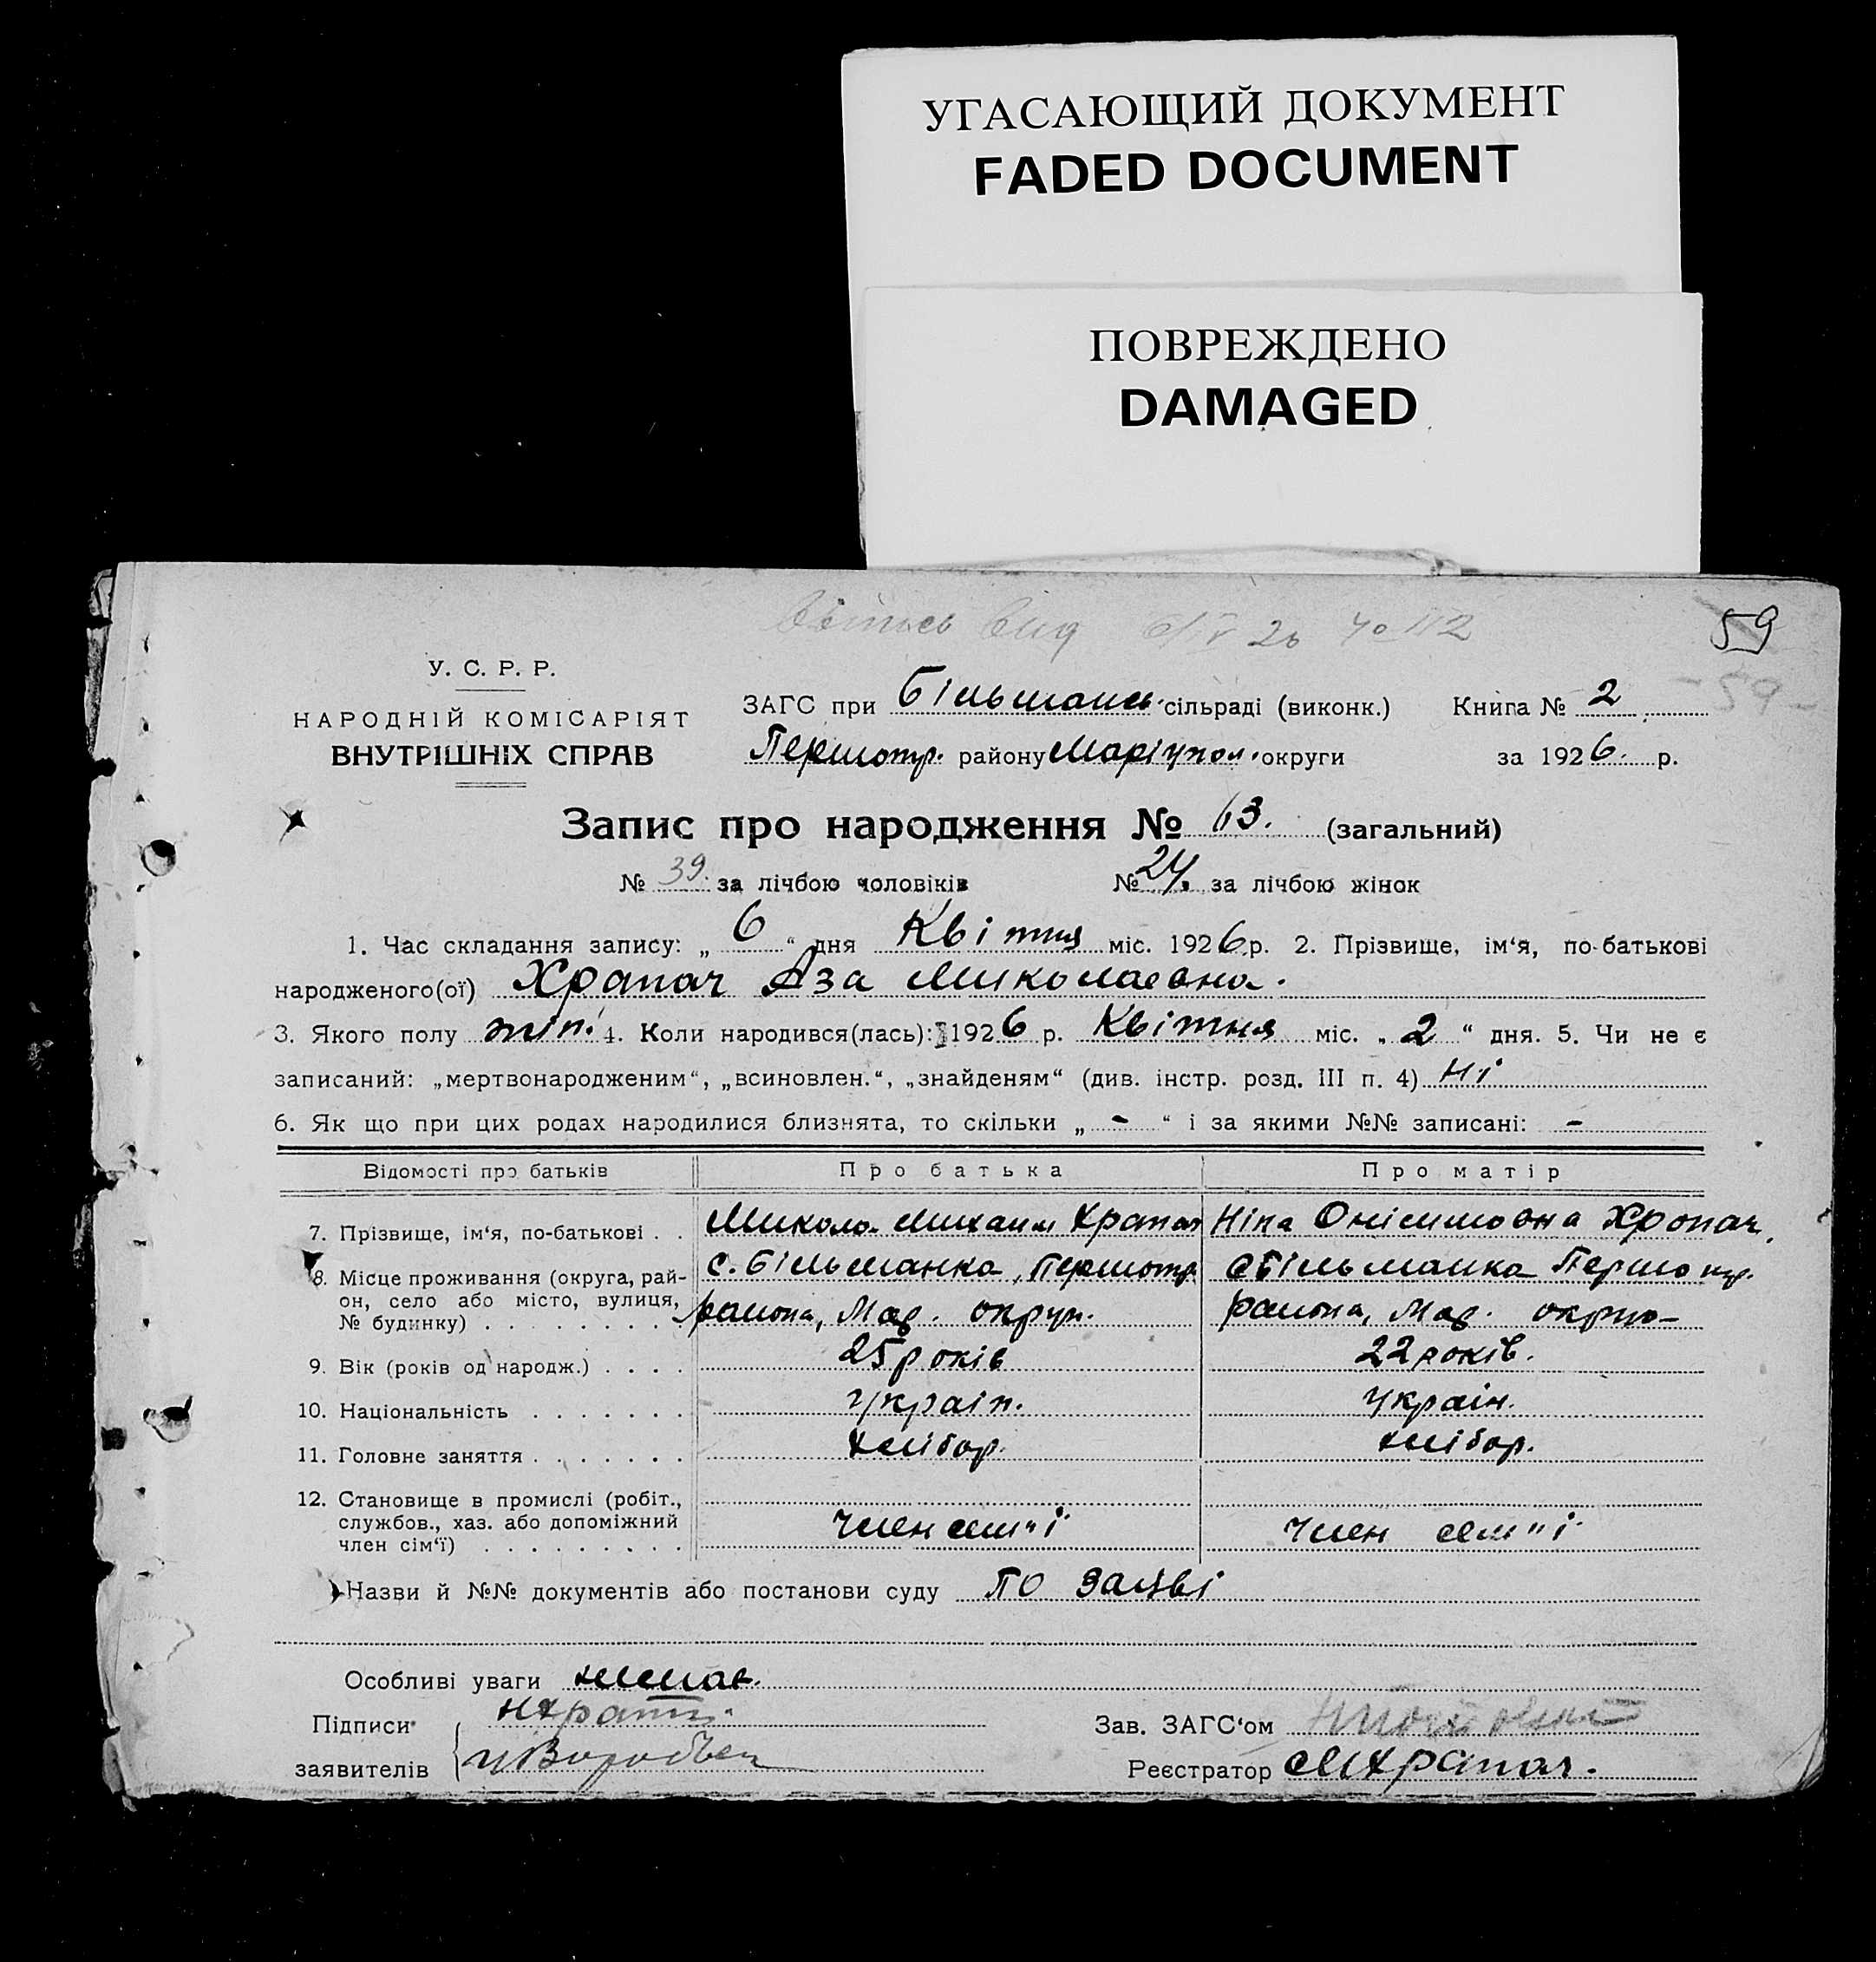 УГАСАЮЩИЙ ДОКУМЕНТ
FADED DOCUMENT
ПОВРЕЖДЕНО
DAMAGED
59
У. С. Р. Р.
НАРОДНІЙ КОМІСАРІЯТ
ВНУТРІШНІХ СПРАВ
ЗАГС при Більмансь. сільраді (виконк.) Книга № 2
- 59 -
Першотр. району Маріупол. округи за 1926. р.
Запис про народження № 63. (загальний)
№ 39. за лічбою чоловіків № 24. за лічбою жінок
1. Час складання запису: „ 6 “ дня Квітня міс. 1926 р. 2. Прізвище, ім‘я, по-батькові
народженого(ої) Храпач Аза Миколаевна.
3. Якого полу жін. 4. Коли народився(лась): 1926 р. Квітня міс. „ 2 “ дня. 5. Чи не є
записаний: „мертвонародженим“, „всиновлен.“, „знайденям“ (див. інстр. розд. III п. 4) Ні
6. Як що при цих родах народилися близнята, то скільки „ - “ і за якими №№ записані: -
Відомості про батьків Про батька Про матір
7. Прізвище, ім‘я, по-батькові . . Микола Михаил Храпач Ніна Онісимовна Храпач.
8. Місце проживання (округа, рай- с. Більманка, Першотр. с Більманка Першотр.
он, село або місто, вулиця,
№ будинку) . . . . . . . . района, Мар. округи. района, Мар. округ
9. Вік (років од народж.) . . . . 25 років 22 років.
10. Національність . . . . . . . Украін. Украін.
11. Головне заняття . . . . . . . хлібор. хлібор.
12. Становище в промислі (робіт.,
службов., хаз. або допоміжний Член сем"і Член сем"і
член сім‘ї) . . . . . . . . .
Назви й №№ документів або постанови суду по заяві
Особливі уваги немає.
Підписи Зав. ЗАГС‘ом
заявителів Реєстратор МХрапач.